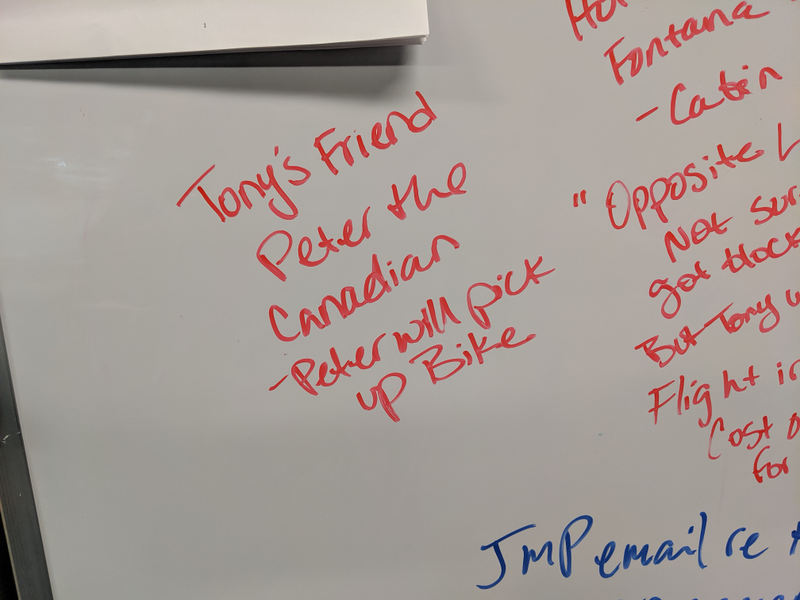 Tony's Friend
Peter the
Canadian
- Peter will pick
up Bike
Fontana
- Cabin
" Opposite
Not
got
But Tony
Flight
Cost
For
JMP email re